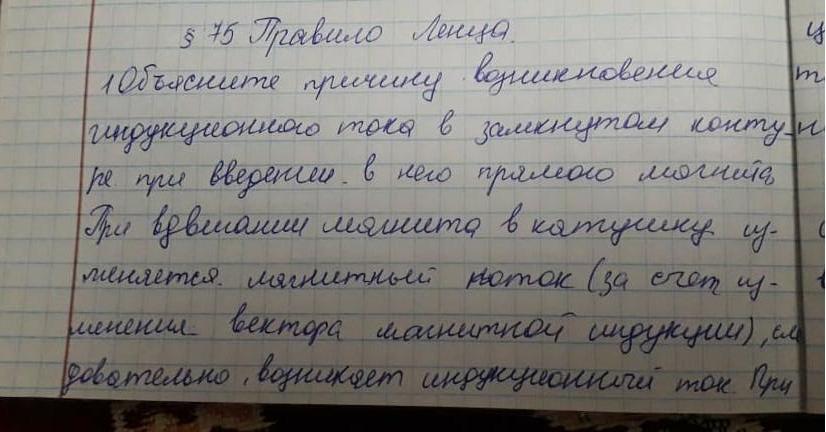 § 75 Правило Ленца.
1 Объясните причину возникновения
индукционного тока в замкнутом конту-
ре при введении в него прямого магнита
При вдвигании магнита в катушку из-
меняется магнитный поток (за счет из-
менения вектора магнитной индукции), сле
довательно, возникает индукционный ток. При